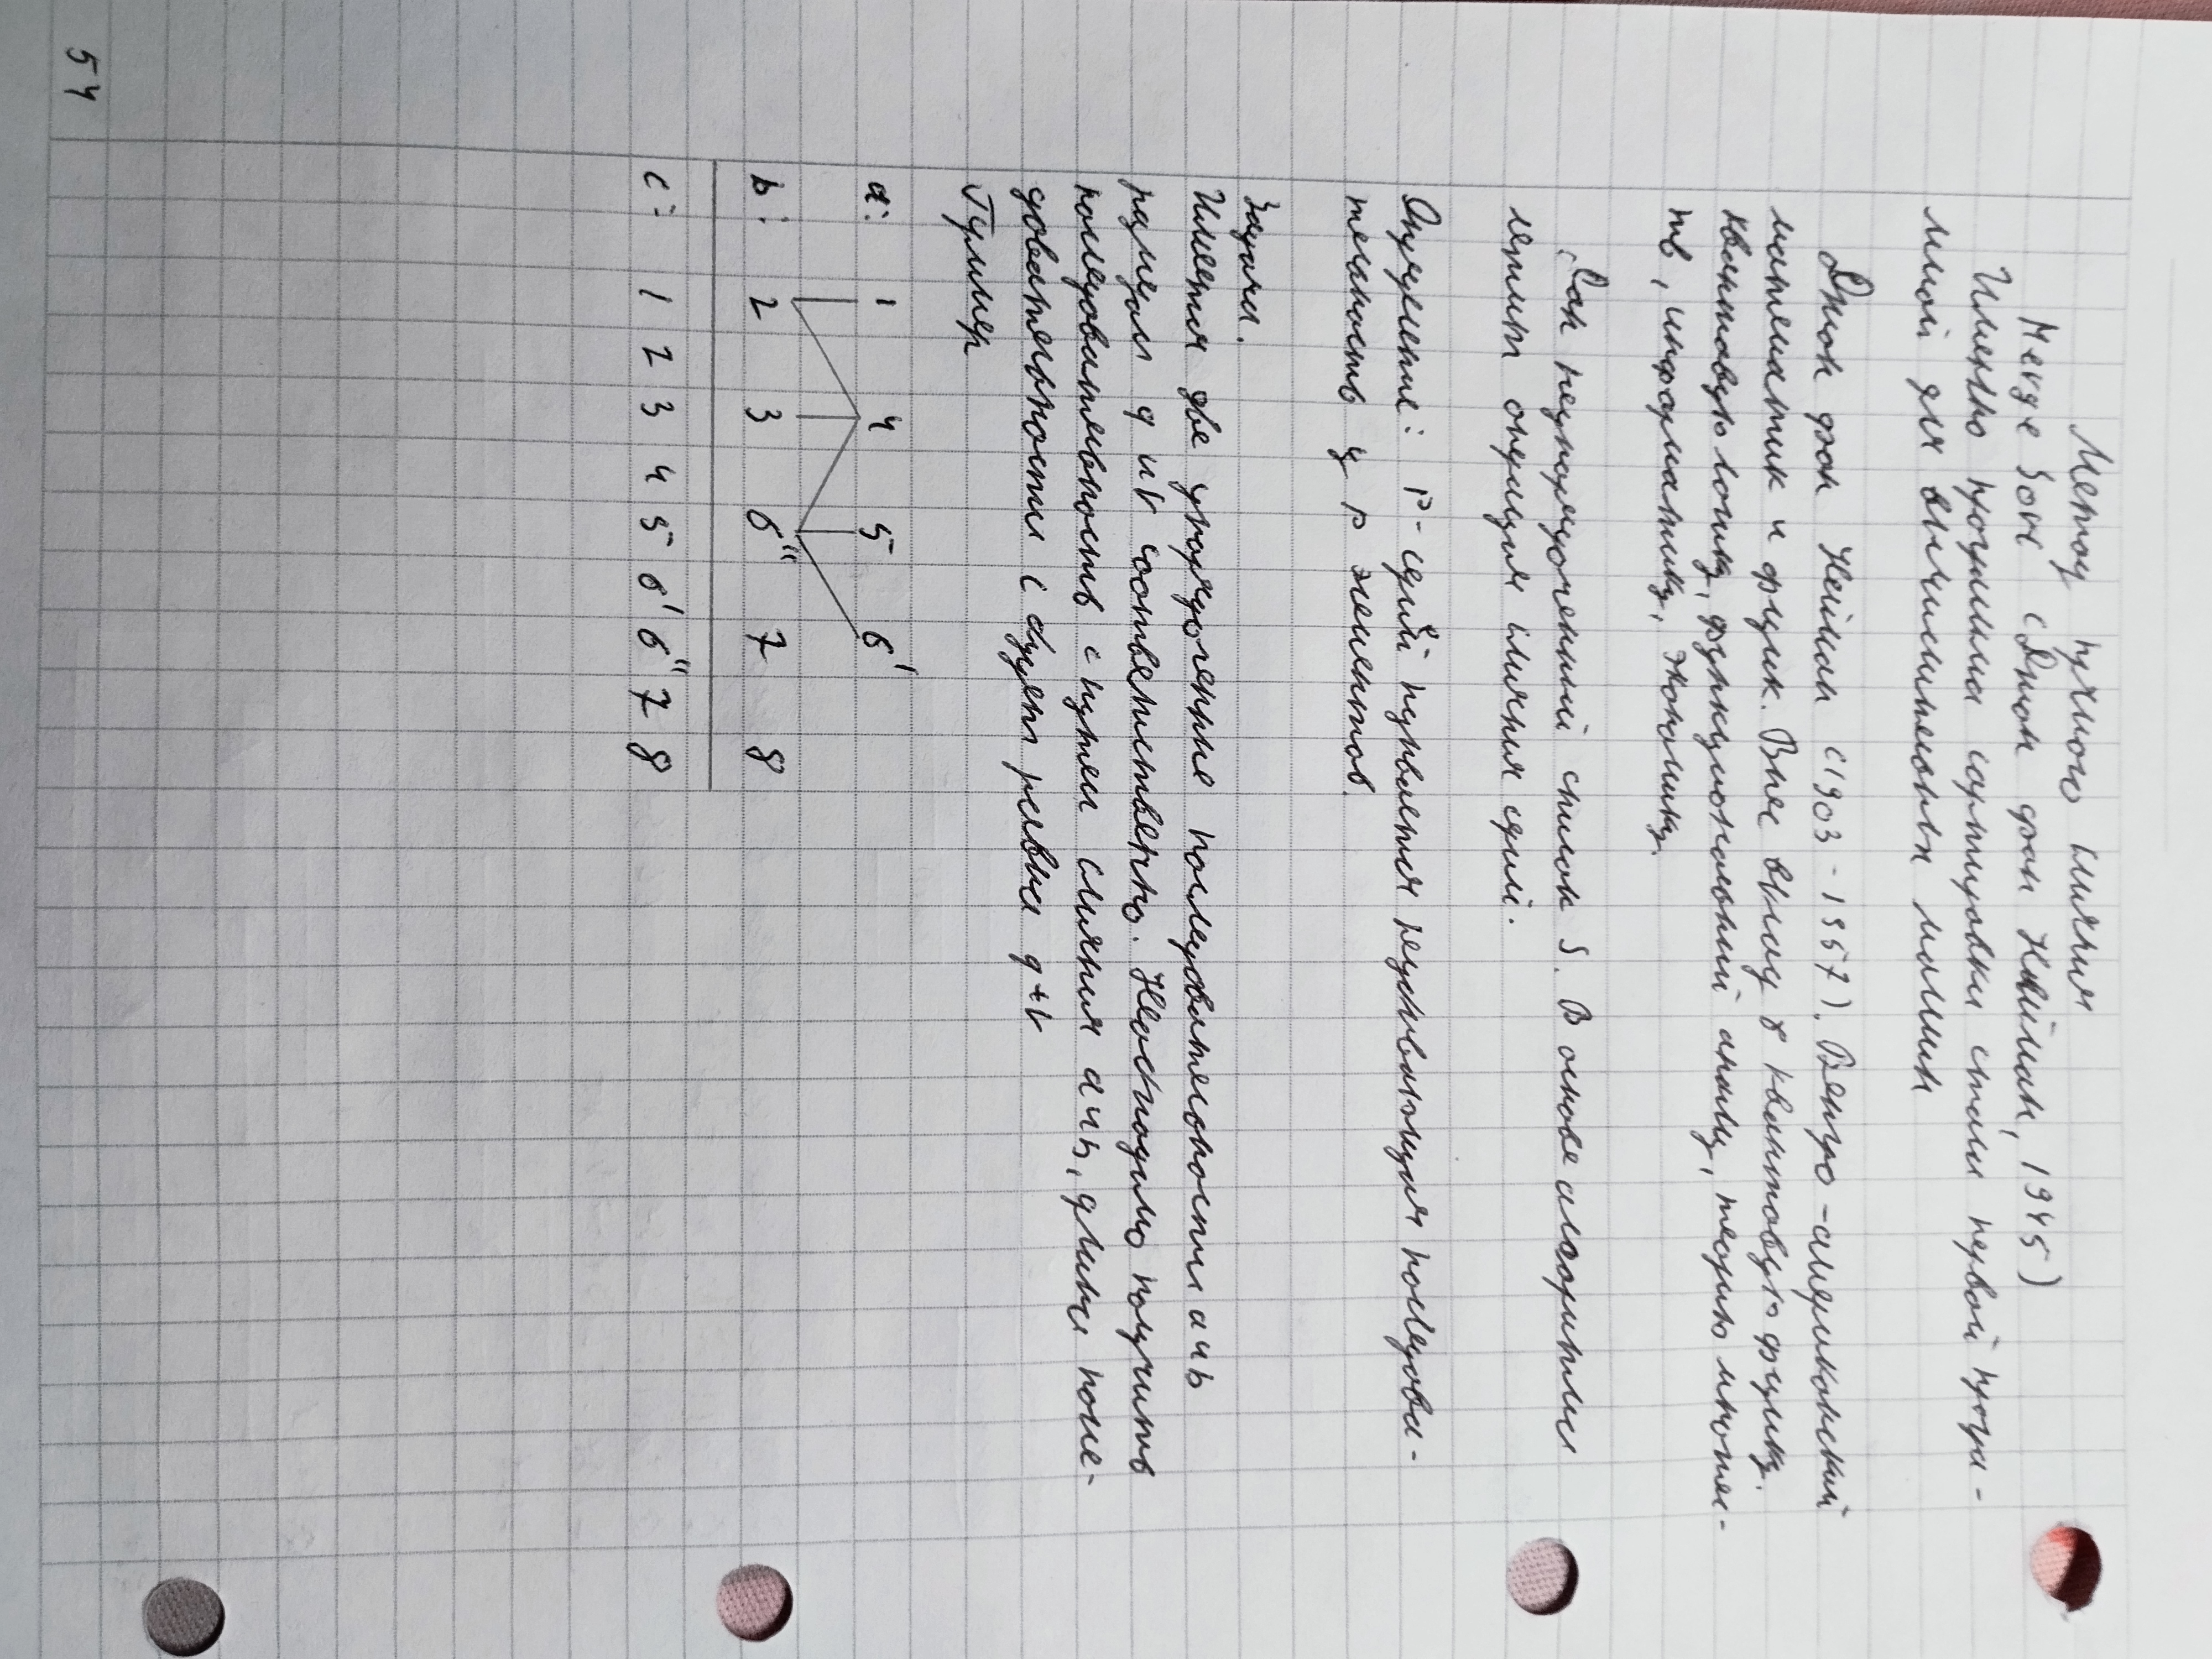 Метод прямого слияния
Merge Sort (Джон фон Нейман, 1945)
Именно программа сортировки стала первой програ-
ммой для вычислительных машин
Джон фон Нейман (1903 - 1957). Венгро-американский
математик и физик. Внес вклад в квантовую физику,
квантовую логику, функциональный анализ, теорию множес-
тв, информатику, экономику.
Дан неупорядоченный список S. В основе алгоритма
лежит операция слияния серий.
Определение: p-серией называется неубывающая последова-
тельность из p элементов.
Задача.
Имеется две упорядоченные последовательности a и b
размером q и r соответственно. Необходимо получить
последовательность c путем слияния a и b, длина после-
довательности c будет равна q+r
Пример
a: 1 4 5 6'
b: 2 3 6'' 7 8
c: 1 2 3 4 5 6' 6'' 7 8
54